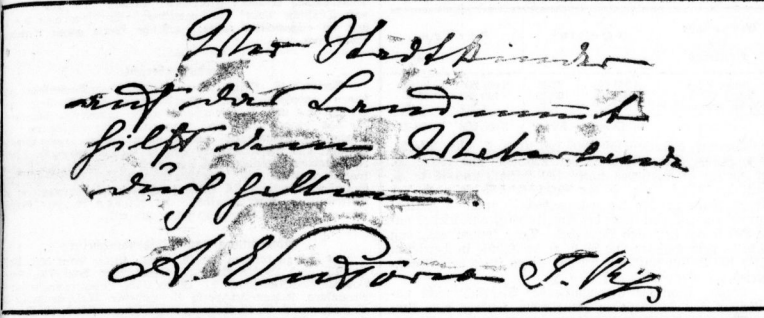 Wer Stadtkinder
auf das Land nimmt
hilft dem Vaterlande
durchhalten.
A. Victoria I. R.